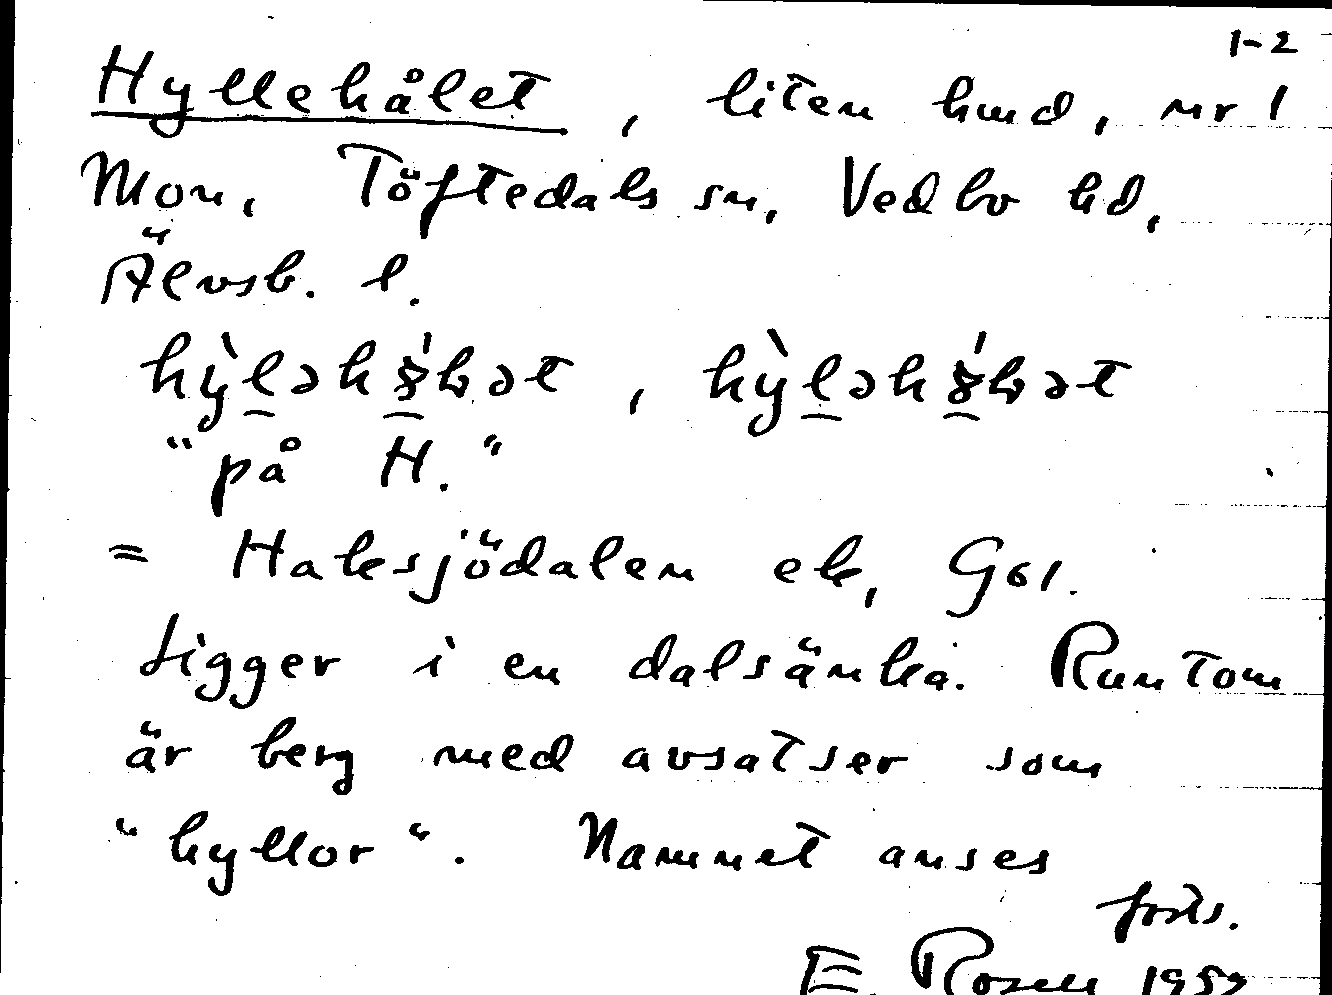 1-2
Hyllehålet, liten lmd, nr 1
Mon, Töftedals sn, Vedbo hd,
Älvsb. l.
"på H."
= Haksjödalen ek, G61.
Ligger i en dalsänka. Runtom
är berg med avsatser som
"hyllor". Namnet anses
forts.
E. Rosell